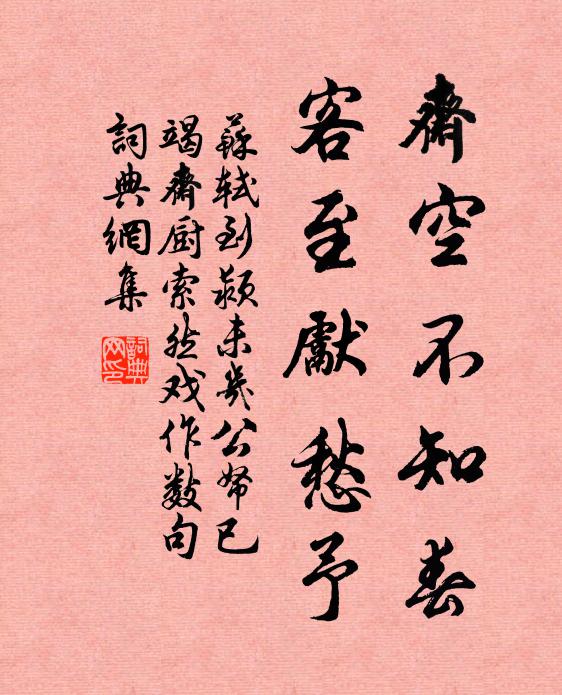 齋空不知春
客至獻愁予
蘇軾到潁未幾公帑已
竭齋厨索然戏作數句
詞典網集
詞典網印